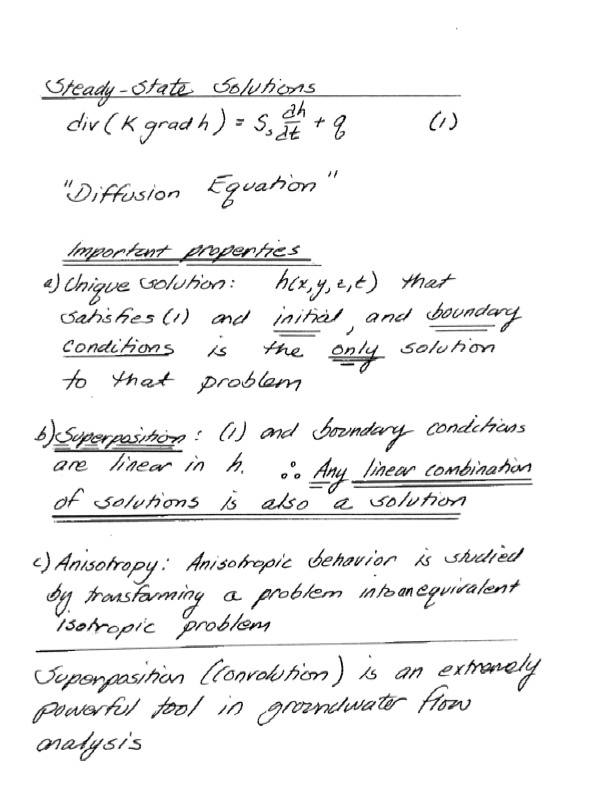 Steady-State Solutions
div (K grad h) = Ss ∂h/∂t + q (1)
"Diffusion Equation"
Important properties
a) Unique solution: h(x,y,z,t) that
satisfies (1) and initial, and boundary
conditions is the only solution
to that problem
b) Superposition: (1) and boundary conditions
are linear in h. ∴ Any linear combination
of solutions is also a solution
c) Anisotropy: Anisotropic behavior is studied
by transforming a problem into an equivalent
isotropic problem
Superposition (Convolution) is an extremely
powerful tool in groundwater flow
analysis